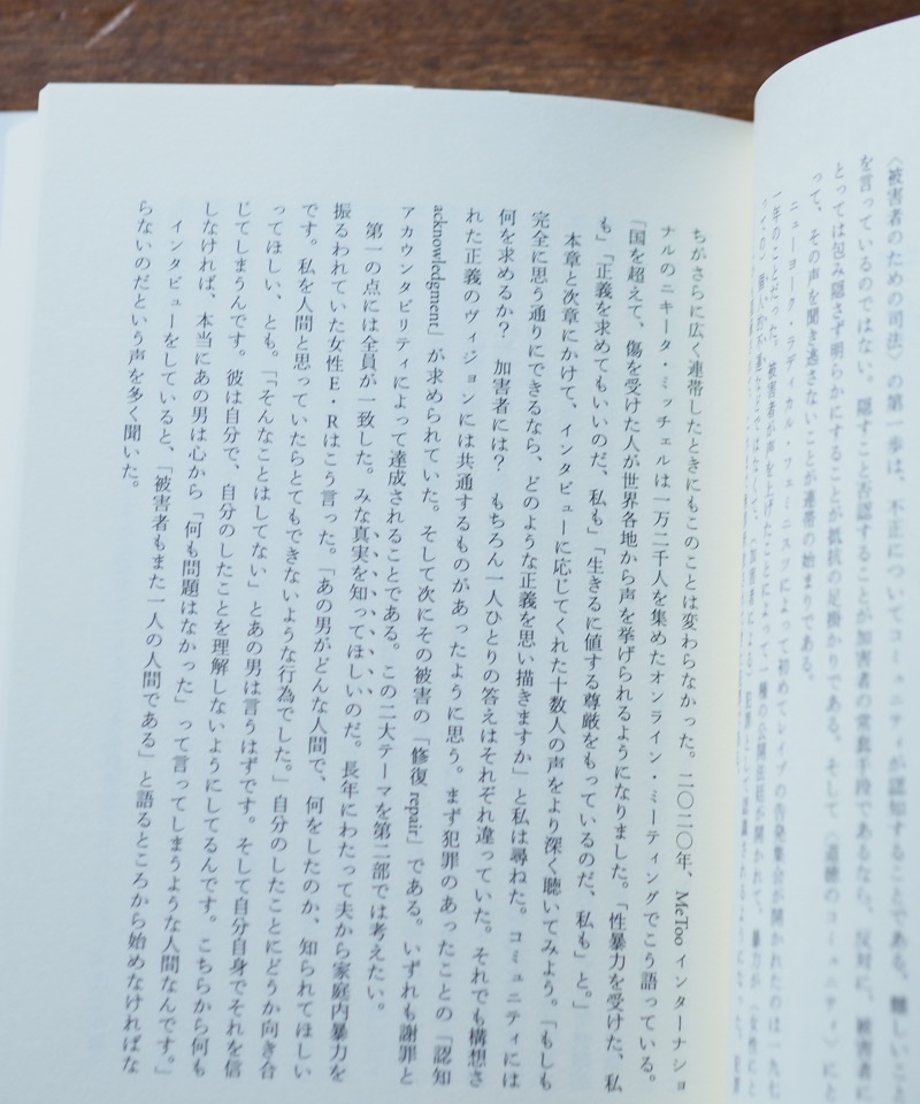 〈被害者のための司法〉の第一歩は、不正についてコミュニティが認知することである。難しいこと
を言っているのではない。隠すこと否認することが加害者の常套手段であるなら、反対に、被害者に
とっては包み隠さず明らかにすることが抵抗の足掛かりである。そして〈道徳のコミュニティ〉にと
って、その声を聞き逃さないことが連帯の始まりである。
ニューヨーク・ラディカル・フェミニスツによって初めてレイプの告発集会が開かれたのは一九七
一年のことだった。被害者が声を上げたことによって一種の公開法廷が開かれて、暴力が〈女性にと
ちがさらに広く連帯したときにもこのことは変わらなかった。二〇二〇年、MeToo インターナショ
ナルのニキータ・ミッチェルは一万二千人を集めたオンライン・ミーティングでこう語っている。
「国を超えて、傷を受けた人が世界各地から声を挙げられるようになりました。「性暴力を受けた、私
も」「正義を求めてもいいのだ、私も」「生きるに値する尊厳をもっているのだ、私も」と。」
本章と次章にかけて、インタビューに応じてくれた十数人の声をより深く聴いてみよう。「もしも
完全に思う通りにできるなら、どのような正義を思い描きますか」と私は尋ねた。コミュニティには
何を求めるか？　加害者には？　もちろん一人ひとりの答えはそれぞれ違っていた。それでも構想さ
れた正義のヴィジョンには共通するものがあったように思う。まず犯罪のあったことの「認知
acknowledgment」が求められていた。そして次にその被害の「修復 repair」である。いずれも謝罪と
アカウンタビリティによって達成されることである。この二大テーマを第二部では考えたい。
第一の点には全員が一致した。みな真実を知ってほしいのだ。長年にわたって夫から家庭内暴力を
振るわれていた女性E・Rはこう言った。「あの男がどんな人間で、何をしたのか、知られてほしい
です。私を人間と思っていたらとてもできないような行為でした。」自分のしたことにどうか向き合
ってほしい、とも。「「そんなことはしてない」とあの男は言うはずです。そして自分自身でそれを信
じてしまうんです。彼は自分で、自分のしたことを理解しないようにしてるんです。こちらから何も
しなければ、本当にあの男は心から「何も問題はなかった」って言ってしまうような人間なんです。」
インタビューをしていると、「被害者もまた一人の人間である」と語るところから始めなければな
らないのだという声を多く聞いた。